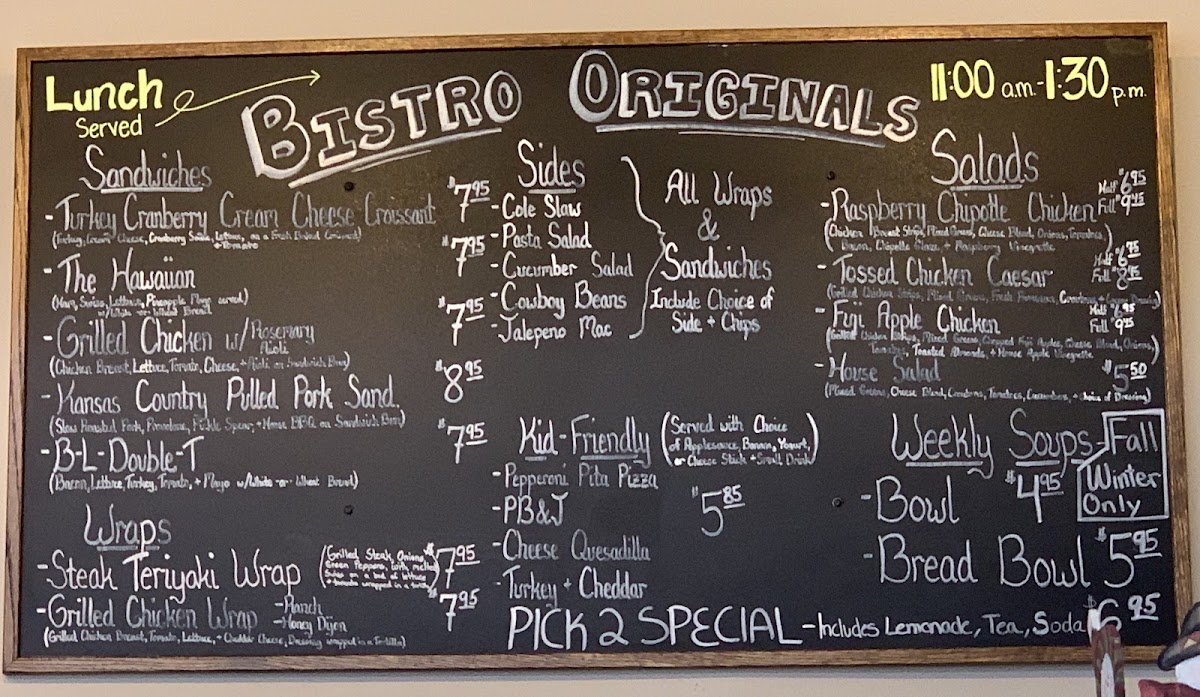 Lunch
Served
BISTRO ORIGINALS
11:00 a.m.-1:30 p.m.
Sandwiches
-Turkey Cranberry Cream Cheese Croissant $7.95
(Turkey, Cream Cheese, Cranberry Sauce, Lettuce, on a Fresh Baked Croissant)
+ Tomato
-The Hawaiian $7.95
(Ham, Swiss, Lettuce, Pineapple Mayo served)
w/White -or- Wheat Bread
-Grilled Chicken w/Rosemary $7.95
Aioli
(Chicken Breast, Lettuce, Tomato, Cheese, + Aioli on Sandwich Bun)
-Kansas Country Pulled Pork Sand. $8.95
(Slow Roasted Pork, Provolone, Pickle Spear, + House BBQ on Sandwich Bun)
-B-L-Double-T $7.95
(Bacon, Lettuce, Turkey, Tomato, + Mayo w/White -or- Wheat Bread)
Wraps
-Steak Teriyaki Wrap $7.95
(Grilled Steak, Onions,
Green Peppers, with melted
Swiss on a bed of lettuce
+ tomato wrapped in a
-Grilled Chicken Wrap -Ranch $7.95
-Honey Dijon
(Grilled Chicken Breast, Tomato, Lettuce, + Cheddar Cheese, Dressing wrapped in a Tortilla)
Sides
-Cole Slaw
-Pasta Salad
-Cucumber Salad
-Cowboy Beans
-Jalepeno Mac
All Wraps
&
Sandwiches
Include Choice of
Side + Chips
Kid-Friendly
(Served with Choice
of Applesauce, Banana, Yogurt,
or Cheese Stick + Small Drink)
-Pepperoni Pita Pizza
-PB&J
$5.85
-Cheese Quesadilla
-Turkey + Cheddar
Salads
-Raspberry Chipotle Chicken Half $6.95
Full $9.45
(Chicken Breast Strips, Mixed Greens, Cheese Blend, Onions, Tomatoes,
Bacon, Chipotle Glaze, + Raspberry Vinegrette
-Tossed Chicken Caesar Half $6.75
Full $8.45
(Grilled Chicken Strips, Mixed Greens, Fresh Parmesan, Croutons + Caesar Dressing)
-Fuji Apple Chicken Half $6.95
Full $9.45
(Grilled Chicken Strips, Mixed Greens, Chopped Fuji Apples, Cheese Blend, Onions,
Tomatoes, Toasted Almonds, + House Apple Vinegrette
-House Salad $5.50
(Mixed Greens, Cheese Blend, Croutons, Tomatoes, Cucumbers, + choice of Dressing)
Weekly Soups-Fall
Winter
Only
-Bowl $4.95
-Bread Bowl $5.95
PICK 2 SPECIAL-Includes Lemonade, Tea, Soda $6.95